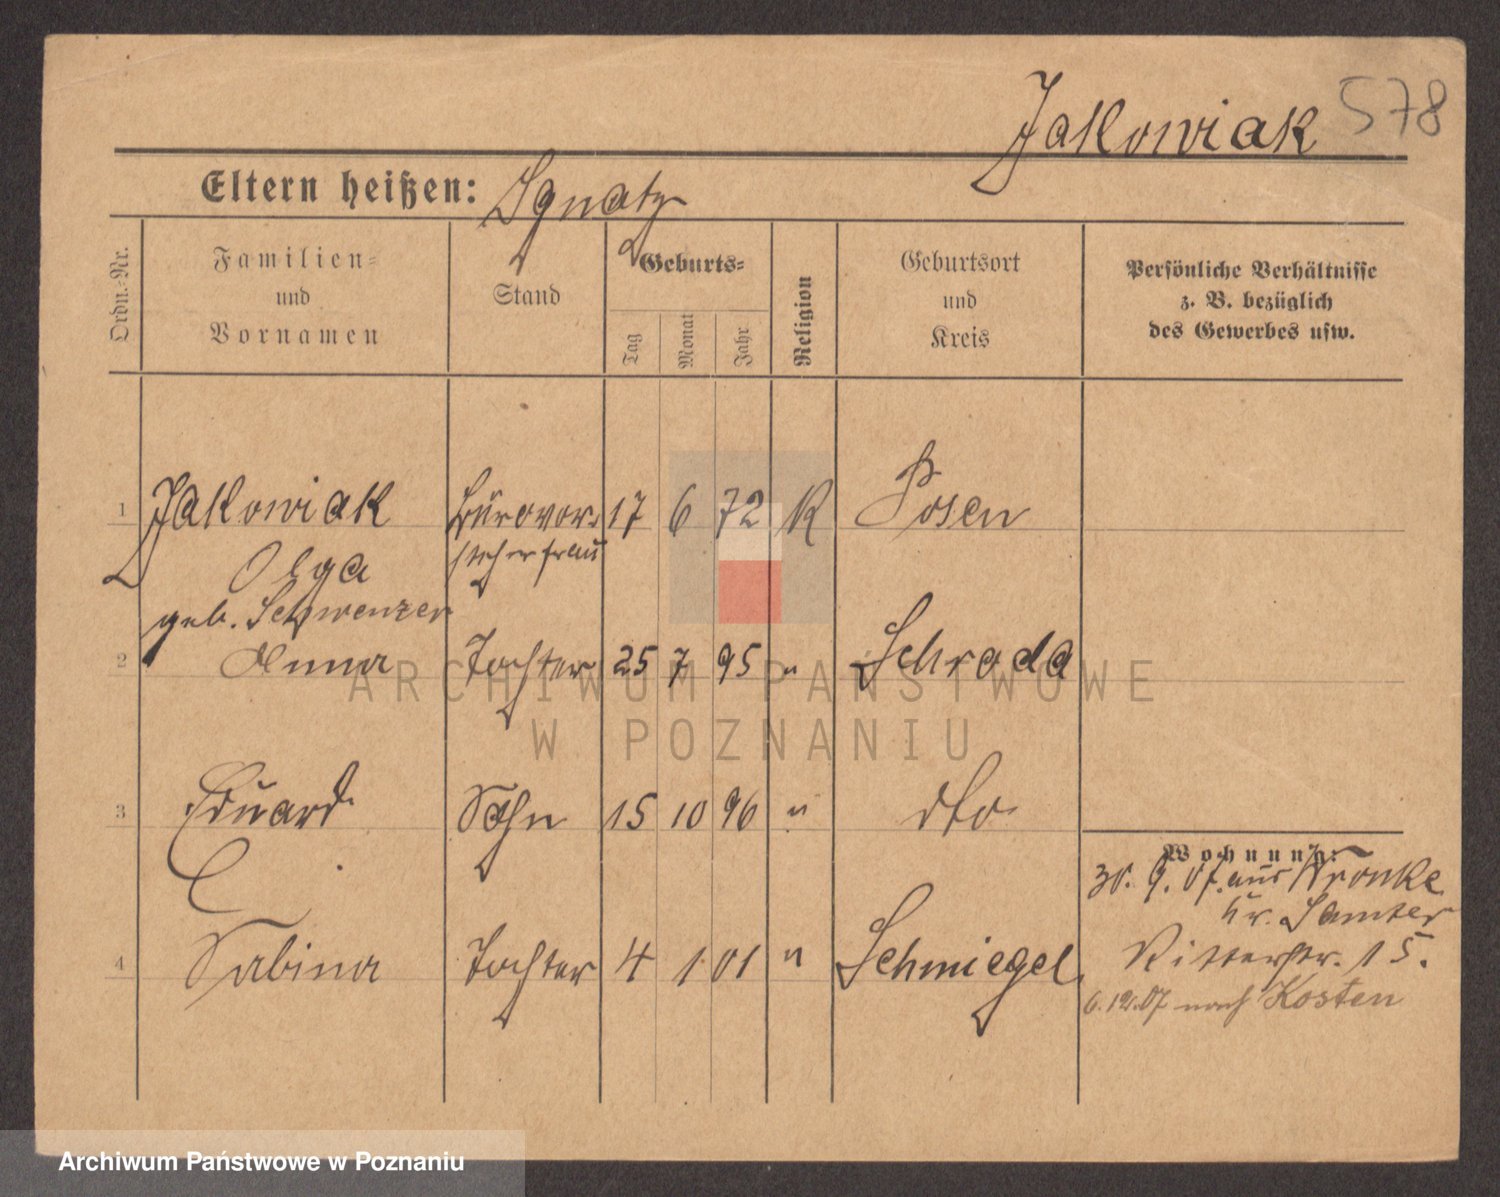 Jakowiak 578
Eltern heißen: Ignatz
Ordn.-Nr.
Familien-
und
Vornamen
Stand
Geburts-
Tag
Monat
Jahr
Religion
Geburtsort
und
Kreis
Persönliche Verhältnisse
z. B. bezüglich
des Gewerbes usw.
1 Jakowiak Bürovor- 17 6 72 K Posen
Olga steherfrau
geb. Schwenzer
2 Anna Tochter 25 7 95 " Schroda
3 Eduard Sohn 15 10 96 " dto
Wohnung:
30. 9. 07. aus Wronke
Kr. Samter
4 Sabina Tochter 4 1 01 " Schmiegel
Ritterstr. 15.
6.12.07 nach Kosten
ARCHIWUM PAŃSTWOWE
W POZNANIU
Archiwum Państwowe w Poznaniu